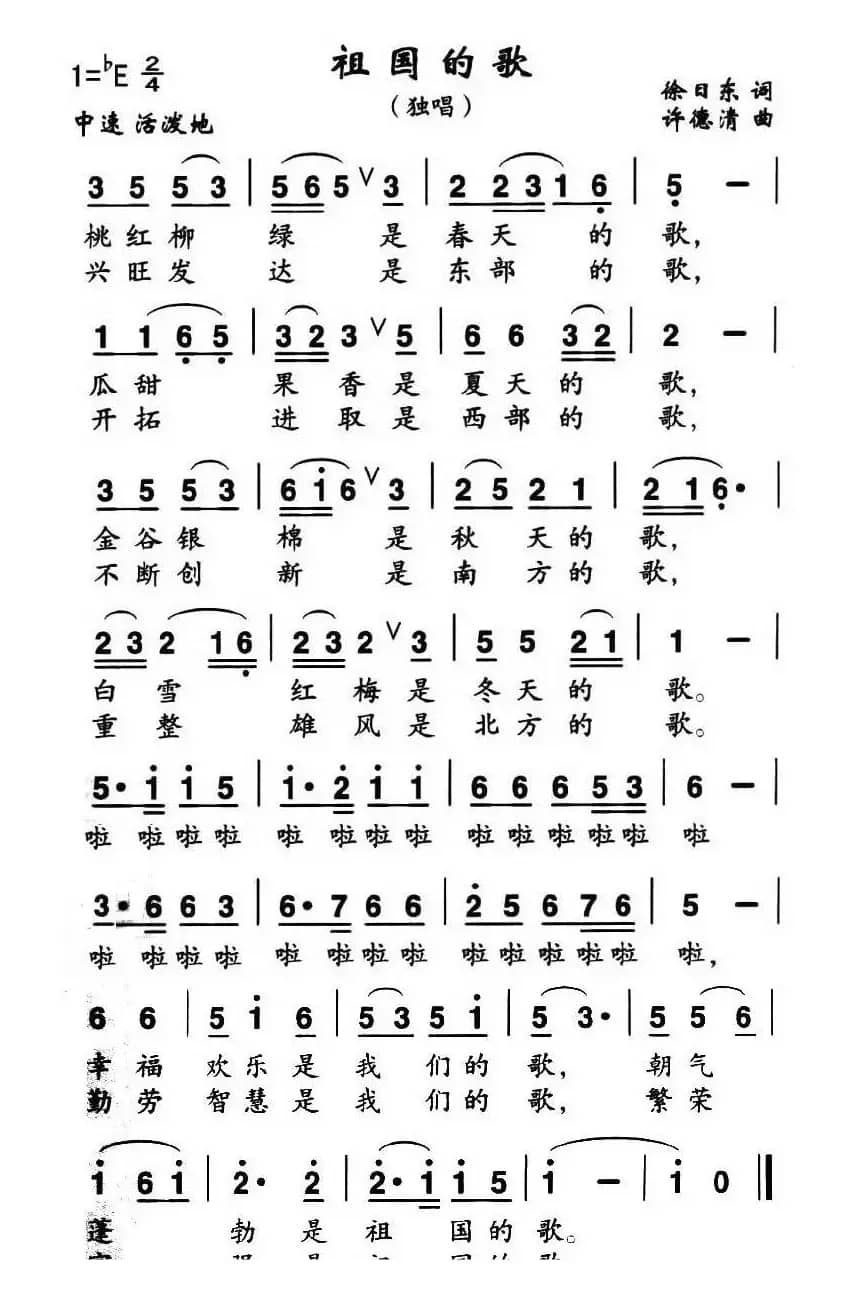 祖国的歌
1=♭E 2/4
(独唱)
徐日东 词
中速 活泼地
许德清 曲
3 5 5 3 | 5 6 5 ∨ 3 | 2 2 3 1 6 | 5 — |
桃红柳 绿 是 春天 的 歌,
兴旺发 达 是 东部 的 歌,
1 1 6 5 | 3 2 3 ∨ 5 | 6 6 3 2 | 2 — |
瓜甜 果香是 夏天的 歌,
开拓 进取是 西部的 歌,
3 5 5 3 | 6 i 6 ∨ 3 | 2 5 2 1 | 2 1 6· |
金谷银 棉 是 秋 天的 歌,
不断创 新 是 南 方的 歌,
2 3 2 1 6 | 2 3 2 ∨ 3 | 5 5 2 1 | 1 — |
白雪 红梅是 冬天的 歌。
重整 雄风是 北方的 歌。
5· i i 5 | i· 2 i i | 6 6 6 5 3 | 6 — |
啦 啦啦啦 啦 啦啦啦 啦啦啦啦啦 啦
3· 6 6 3 | 6· 7 6 6 | 2 5 6 7 6 | 5 — |
啦 啦啦啦 啦 啦啦啦 啦啦啦啦啦 啦,
6 6 | 5 i 6 | 5 3 5 i | 5 3· | 5 5 6 |
幸福 欢乐是 我 们的 歌, 朝气
勤劳 智慧是 我 们的 歌, 繁荣
i 6 i | 2· 2 | 2· i i 5 | i — | i 0 ‖
蓬 勃 是 祖 国的 歌。